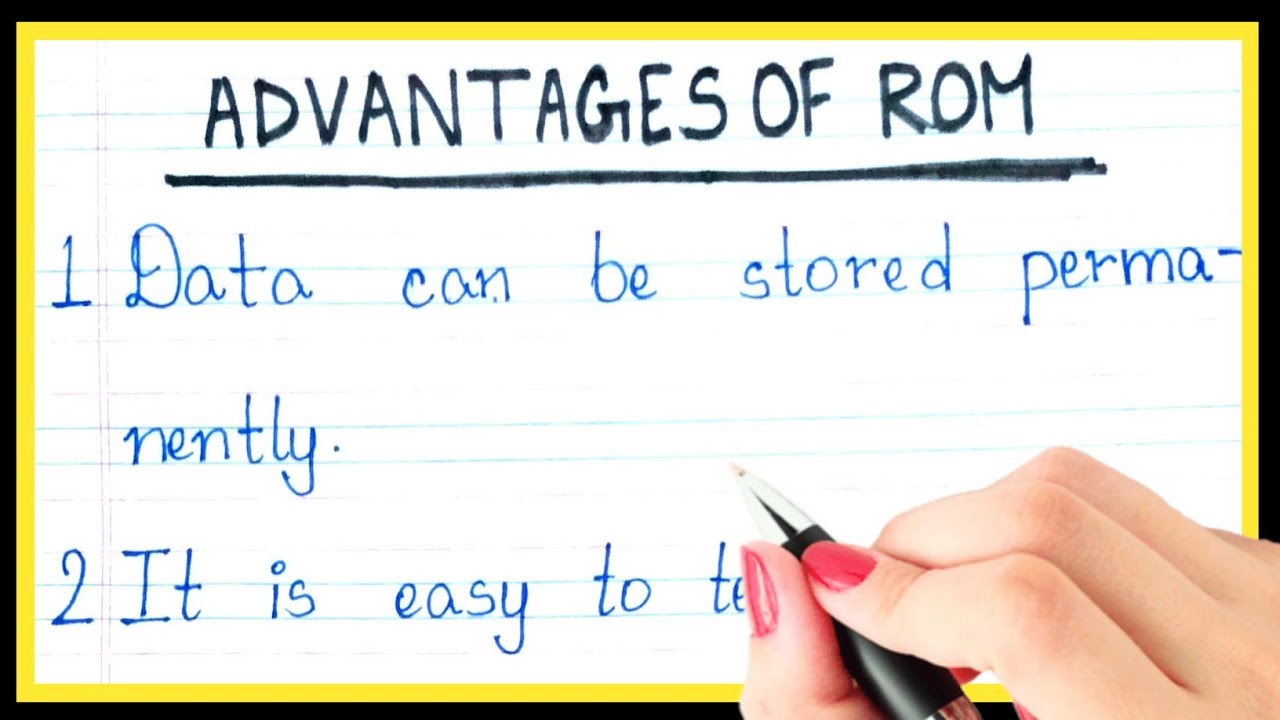 ADVANTAGES OF ROM
1 Data can be stored perma-
nently.
2 It is easy to